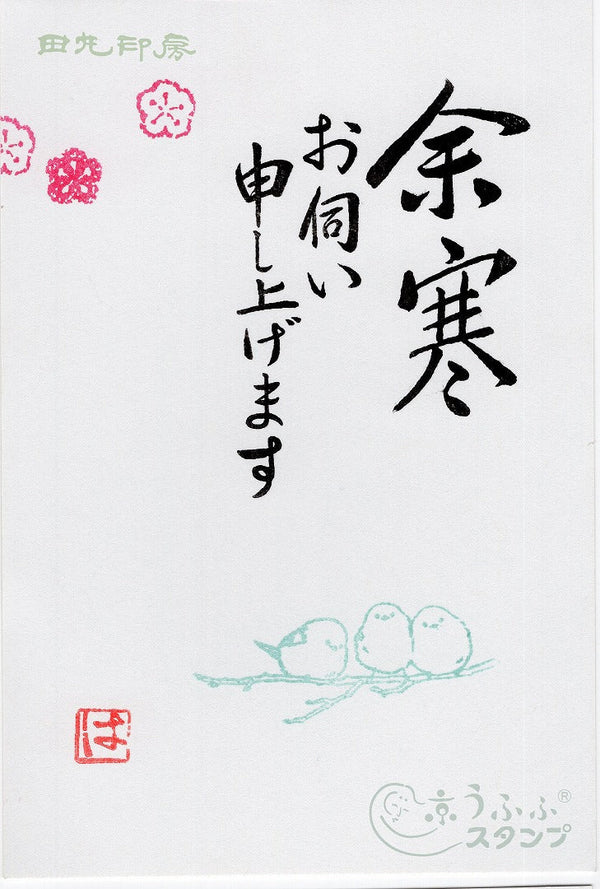 田丸印房
余寒
お伺い
申し上げます
は
京うふふ®
スタンプ